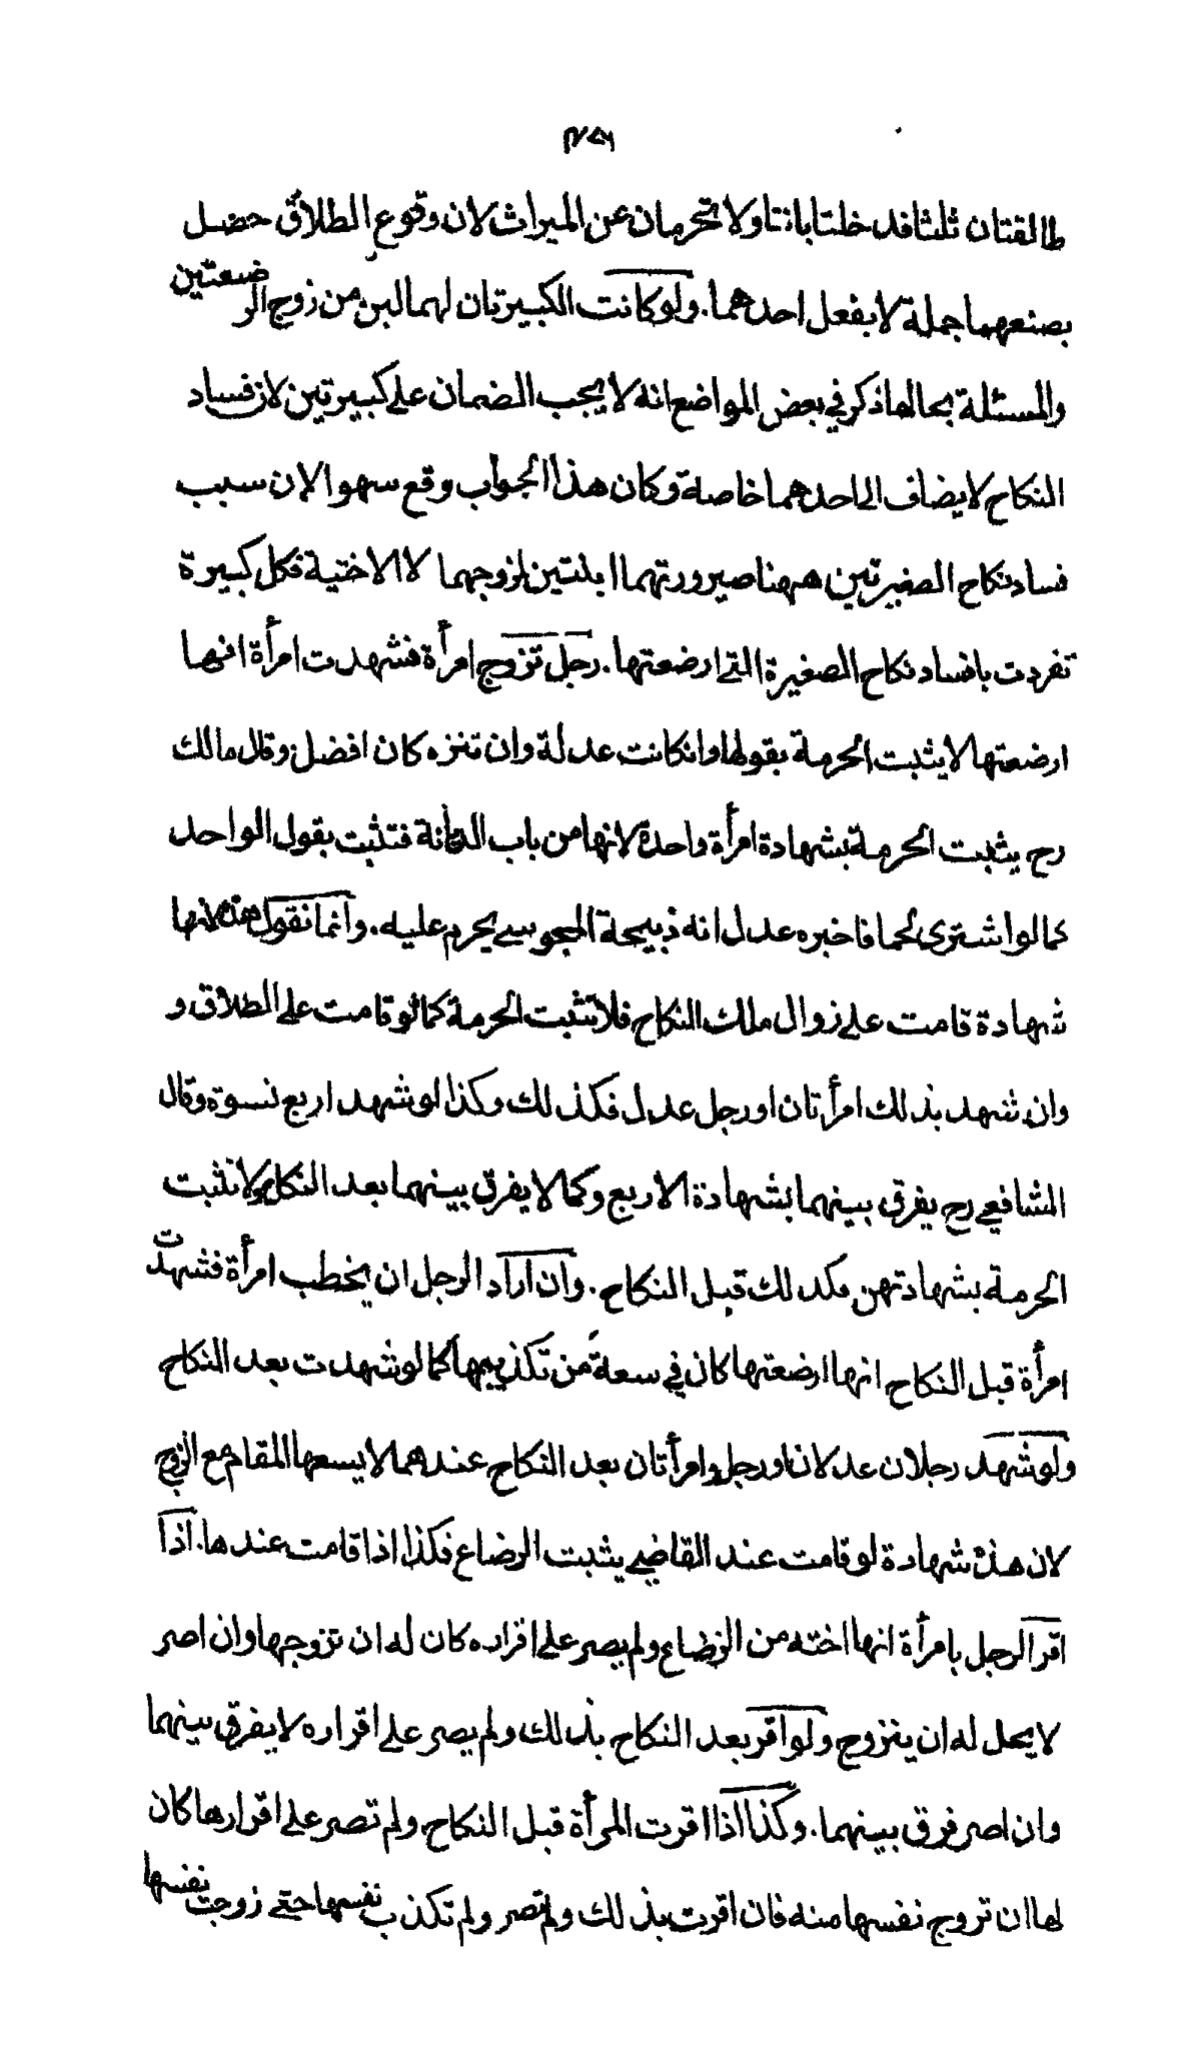 طالقتان ثلثا فدخلتا بانتا ولا تحرمان عن الميراث لان وقوع الطلاق حصل
بصنعهما جملة لا بفعل احدهما. ولو كانت الكبيرتان لهما لبن من زوج الرضيعتين
والمسئلة بحالها ذكر في بعض المواضع انه لا يجب الضمان على كبيرتين لان فساد
النكاح لا يضاف الى احدهما خاصة وكان هذا الجواب وقع سهوا لان سبب
فساد نكاح الصغيرتين ههنا صيرورتهما ابنتين لزوجهما لا الاختية فكل كبيرة
تفردت بافساد نكاح الصغيرة التي ارضعتها. رجل تزوج امرأة فشهدت امرأة انها
ارضعتها لا يثبت الحرمة بقولها وانكانت عدلة وان تنزه كان افضل وقال مالك
رح يثبت الحرمة بشهادة امرأة واحدة لانها من باب الديانة فتثبت بقول الواحد
كما لو اشترى لحما فاخبره عدل انه ذبيحة المجوسي يحرم عليه. وانما نقول هذه لانها
شهادة قامت على زوال ملك النكاح فلا تثبت الحرمة كما لو قامت على الطلاق و
وان شهد بذلك امرأتان او رجل عدل فكذلك وكذا لو شهد اربع نسوة وقال
الشافعي رح يفرق بينهما بشهادة الاربع وكما لا يفرق بينهما بعد النكاح ولا تثبت
الحرمة بشهادتهن فكذلك قبل النكاح. وان اراد الرجل ان يخطب امرأة فشهدت
امرأة قبل النكاح انها ارضعتها كان في سعة من تكذيبها كما لو شهدت بعد النكاح
ولو شهد رجلان عدلان او رجل وامرأتان بعد النكاح عندهما لا يسعها المقام مع الزوج
لان هذه شهادة لو قامت عند القاضي يثبت الرضاع فكذا اذا قامت عندها. اذا
اقر الرجل بامرأة انها اخته من الرضاع ولم يصر على اقراره كان له ان تزوجها وان اصر
لا يحل له ان يتزوج ولو اقر بعد النكاح بذلك ولم يصر على اقراره لا يفرق بينهما
وان اصر فرق بينهما. وكذا اذا اقرت المرأة قبل النكاح ولم تصر على اقرارها كان
لها ان تزوج نفسها منه فان اقرت بذلك ولم تصر ولم تكذب نفسها حتى زوجت نفسها